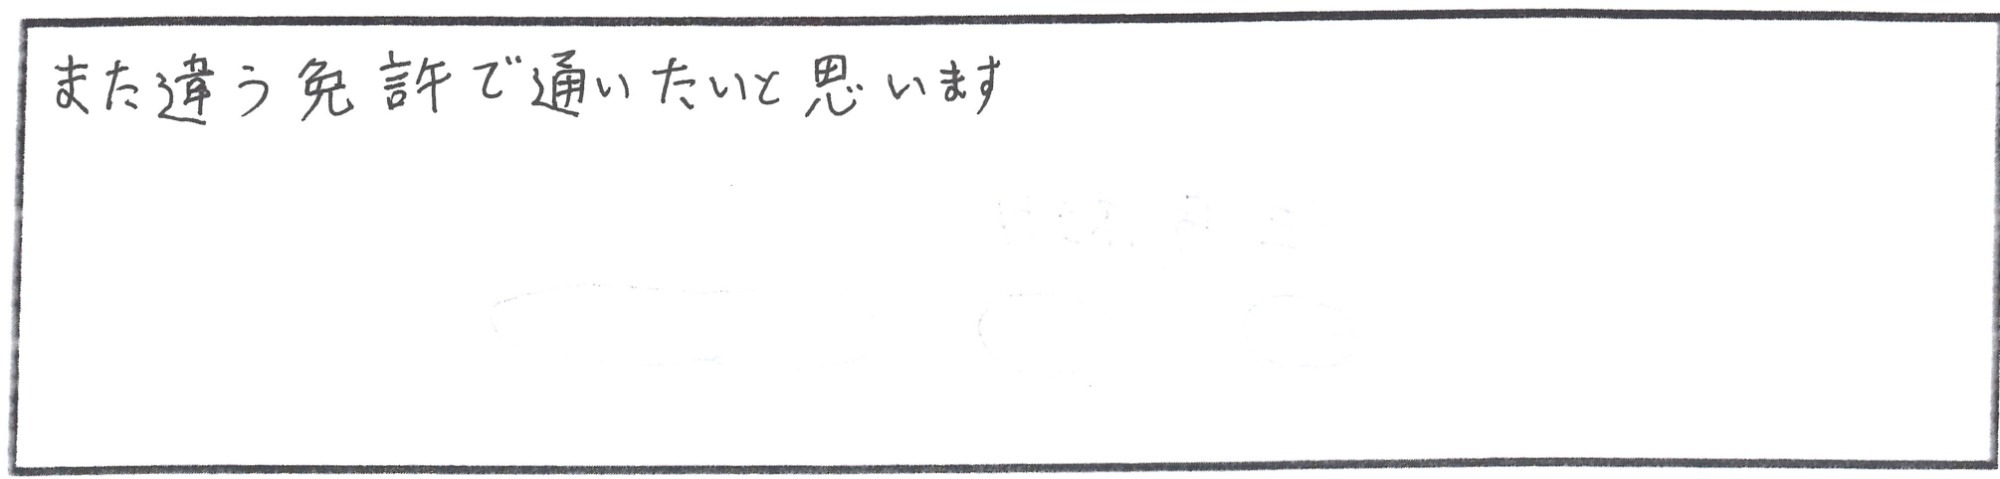 また違う免許で通いたいと思います